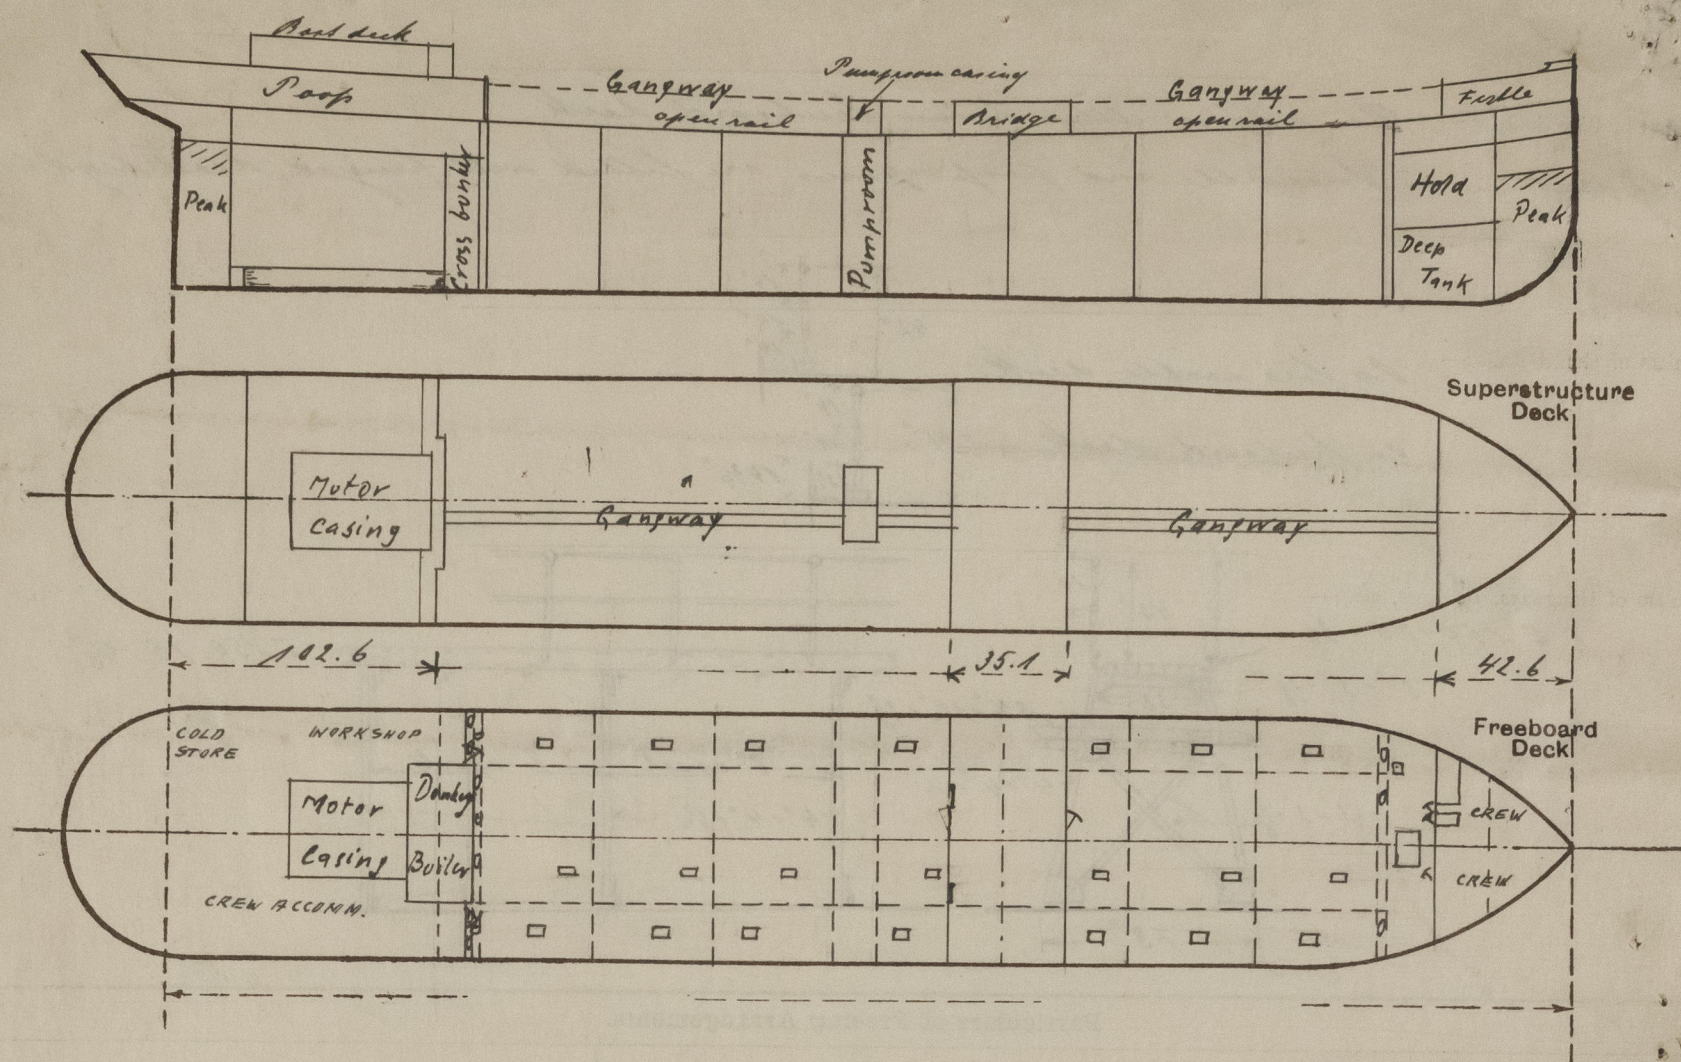 Boat deck
Poop
Gangway
open rail
Pumproom casing
Bridge
Gangway
open rail
Fxstle
Peak
Cross bunker
Pumproom
Hold
Peak
Deep
Tank
Superstructure
Deck
Motor
Casing
Gangway
Gangway
102.6
35.1
42.6
Freeboard
Deck
COLD
STORE
WORKSHOP
Motor
Casing
Donkey
Boiler
CREW ACCOMM.
CREW
CREW